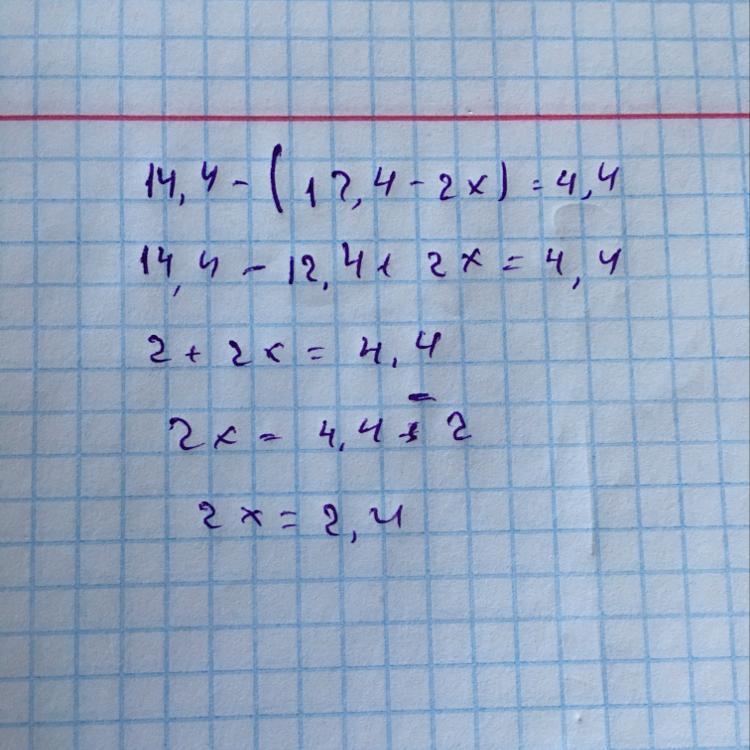 14,4 - (12,4 - 2x) = 4,4
14,4 - 12,4 + 2x = 4,4
2 + 2x = 4,4
2x = 4,4 - 2
2x = 2,4